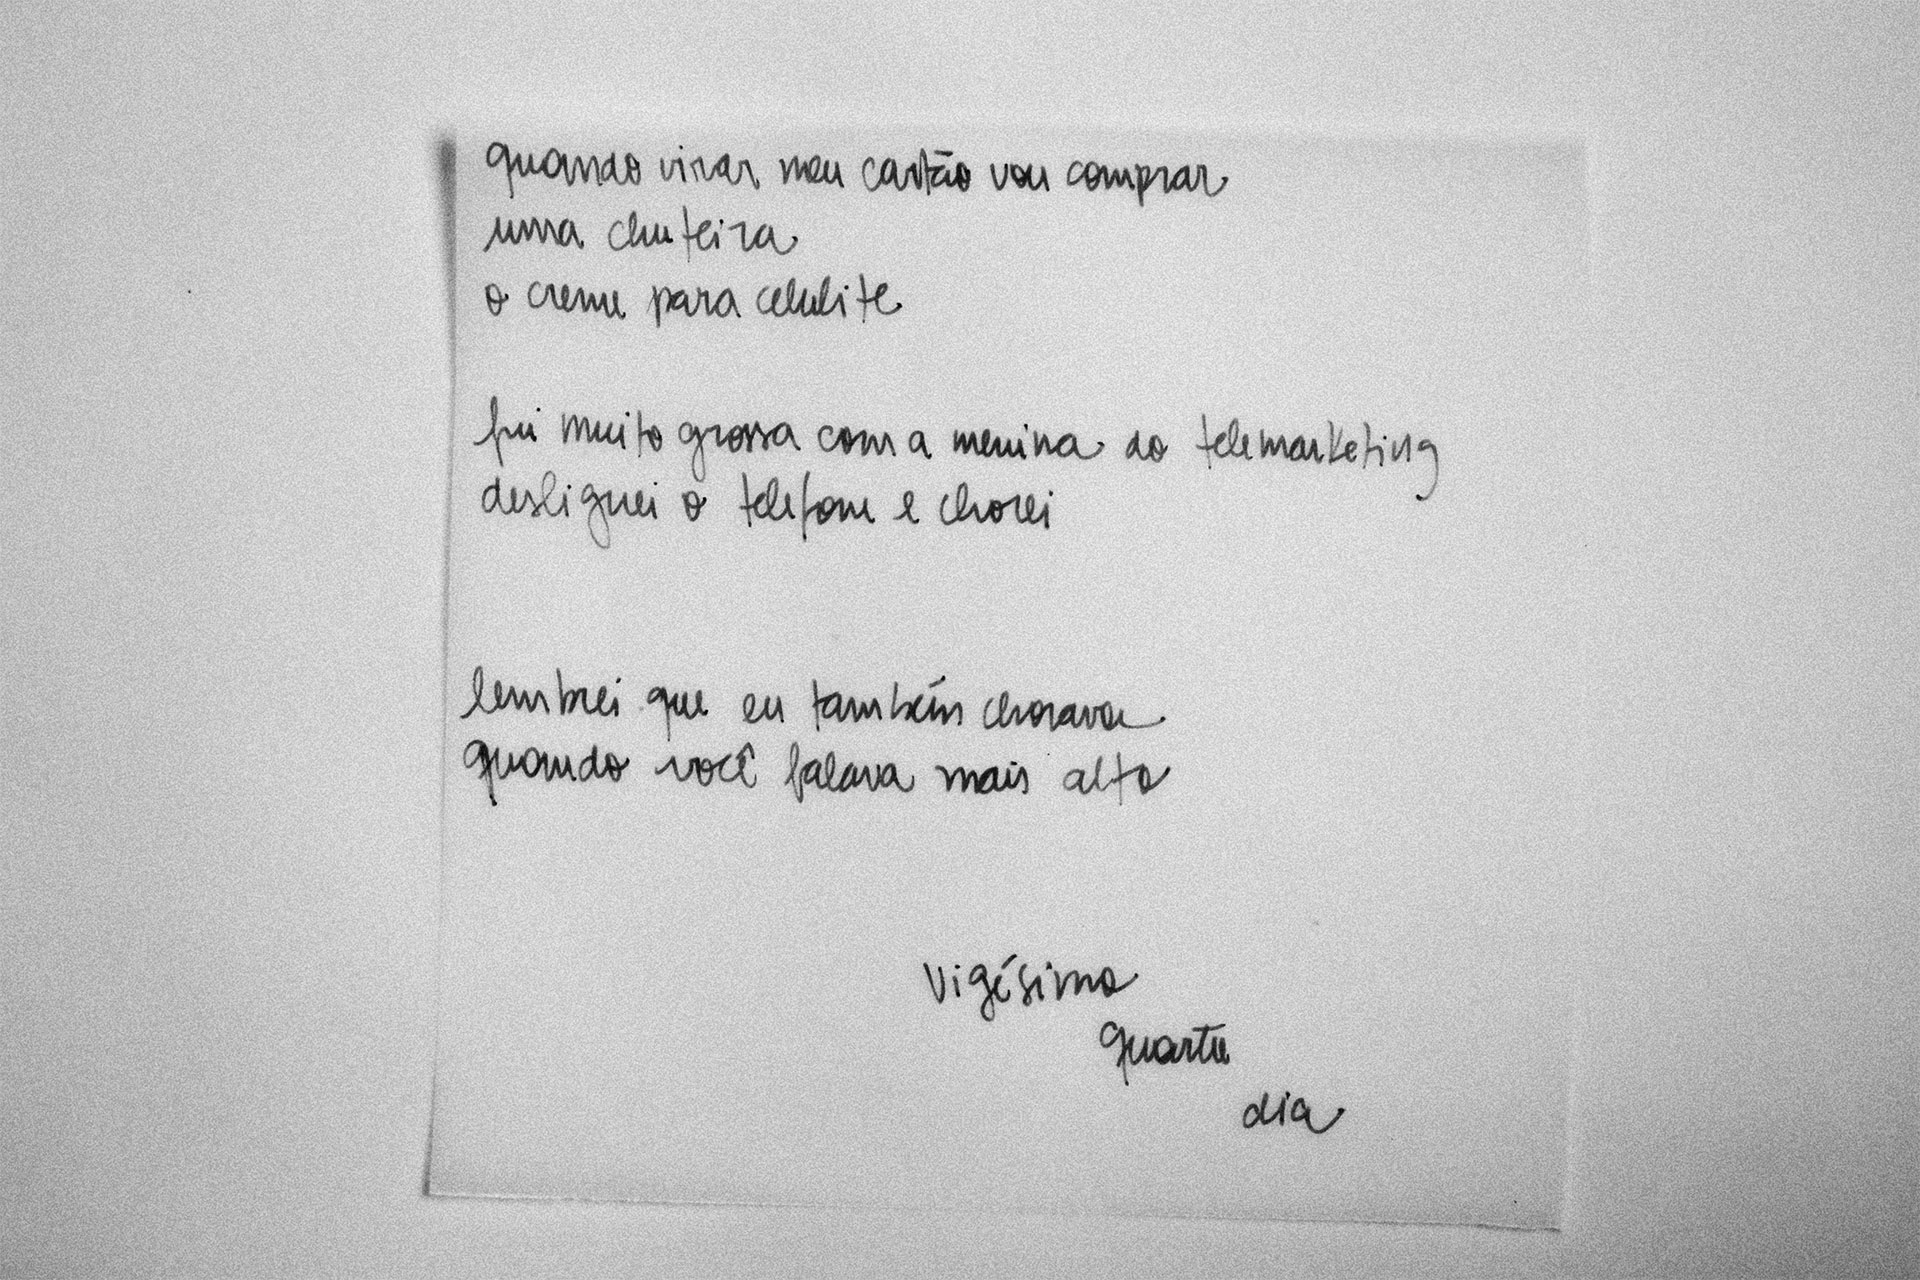 quando virar meu cartão vou comprar
uma chuteira
o creme para celulite
fui muito grossa com a menina do telemarketing
desliguei o telefone e chorei
lembrei que eu também chorava
quando você falava mais alto
vigésimo
quarto
dia